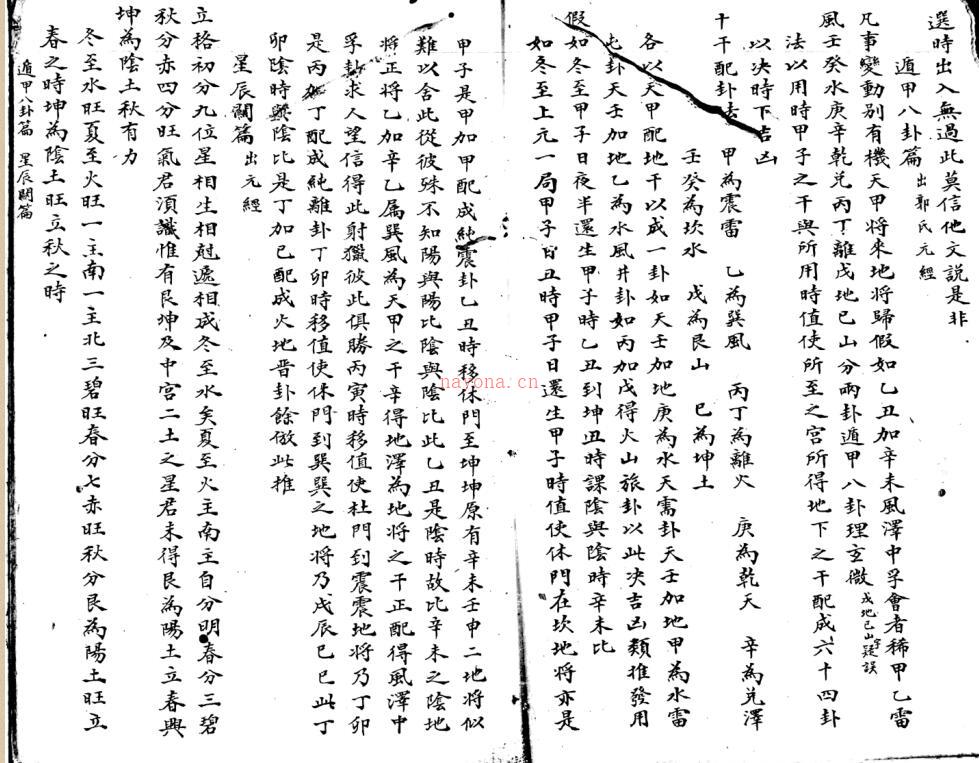 選時出入無過此莫信他文說是非
遁甲八卦篇 出郭氏元經
凡事變動別有機天甲將來地將歸假如乙丑加辛未風澤中孚會者稀甲乙雷
風壬癸水庚辛乾兑丙丁離戊地巳山分兩卦遁甲八卦理玄微 戊地巳山字疑誤
法以用時甲子之干與所用時值使所至之宮所得地下之干配成六十四卦
以决時下吉凶
十干配卦
甲為震雷 乙為巽風 丙丁為離火 庚為乾天 辛為兑澤
壬癸為坎水 戊為艮山 巳為坤土
各以天甲配地干以成一卦如天壬加地庚為水天需卦天壬加地甲為水雷
屯卦天壬加地乙為水風井卦如丙加戊得火山旅卦以此决吉凶類推發用
假如冬至甲子日夜半還生甲子時乙丑到坤丑時課陰與陰時辛未比
如冬至上元一局甲子日丑時甲子日還生甲子時值使休門在坎地將亦是
甲子是甲加甲配成純震卦乙丑時移休門至坤坤原有辛未壬申二地將似
難以舍此從彼殊不知陽與陽比陰與陰比此乙丑是陰時故比辛未之陰地
將正將乙加辛乙屬巽風為天甲之干辛得地澤為地將之干正配得風澤中
孚卦求人望信得此射獵彼此俱勝丙寅時移值使杜門到震震地將乃丁卯
是丙加丁配成純離卦丁卯時移值使休門到巽巽之地將乃戊辰巳巳此丁
卯陰時與陰比是丁加巳配成火地晋卦餘倣此推
星辰闢篇 出元經
立格初分九位星相生相尅遞相成冬至水矣夏至火主南主自分明春分三碧
秋分赤四分旺氣君須識惟有艮坤及中宮二土之星君未得艮為陽土立春興
坤為陰土秋有力
冬至水旺夏至火旺一主南一主北三碧旺春分七赤旺秋分艮為陽土旺立
春之時坤為陰土旺立秋之時
遁甲八卦篇 星辰闢篇
nayona.cn